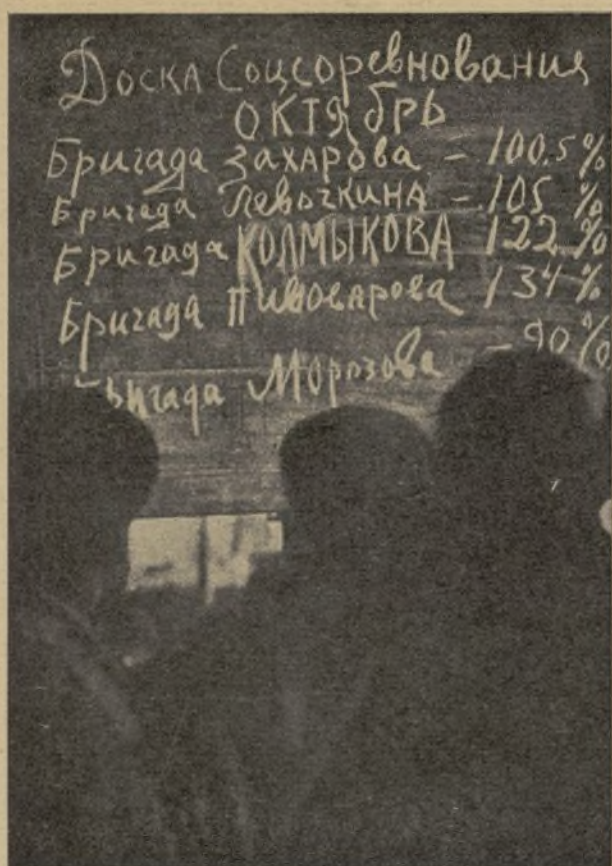 Доска Соцсоревнования
ОКТЯбРЬ
Бригада Захарова - 100.5%
Бригада Левочкина - 105 %
Бригада КОЛМЫКОВА 122 %
Бригада Пивоварова 134%
Бригада Морозова - 90%